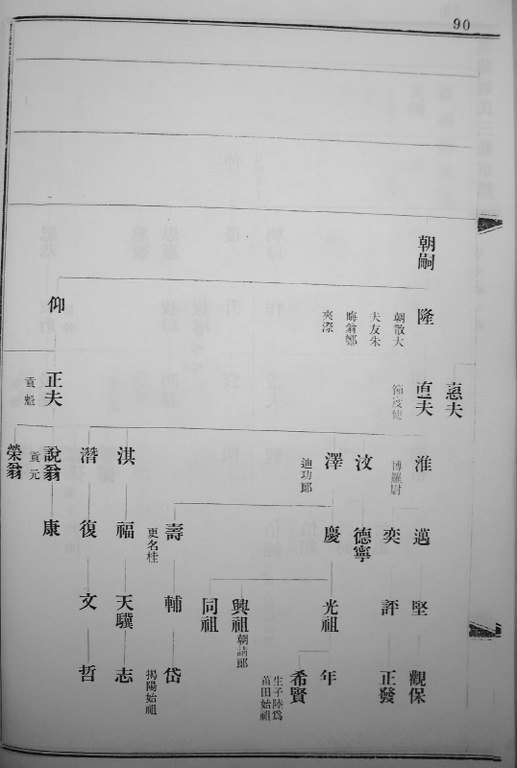 90
朝嗣
隆
朝散大
夫友朱
晦翁鄭
夾漈
仰
惠夫
直夫
節度使
正夫
貢魁
淮
博羅尉
汶
澤
迪功郎
淇
潛
說翁
貢元
榮翁
邁
奕
德寧
慶
壽
更名桂
福
復
康
堅
評
光祖
興祖
朝請郎
同祖
輔
天驥
文
觀保
正發
年
希賢
生子陸為
莆田始祖
岱
揭陽始祖
志
哲